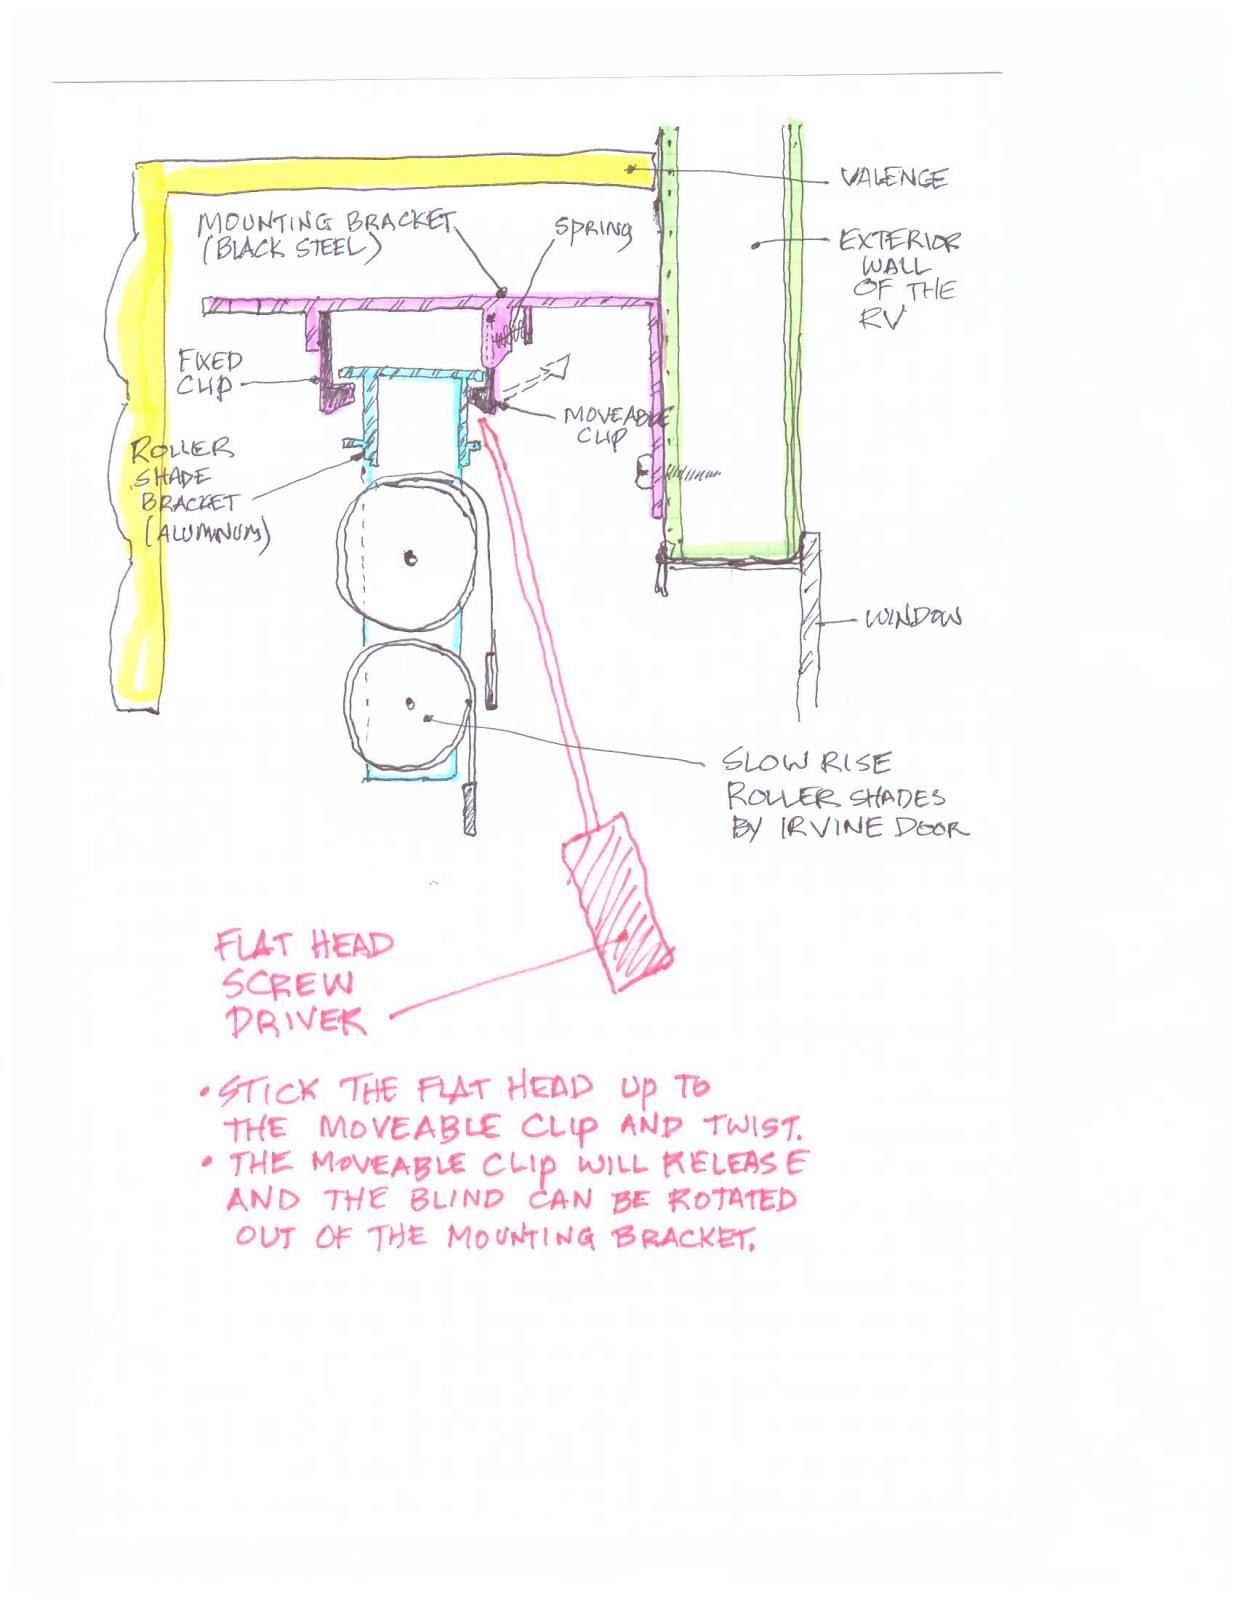 VALENGE
MOUNTING BRACKET
(BLACK STEEL)
SPRING
EXTERIOR
WALL
OF THE
RV
FIXED
CLIP
MOVEABLE
CLIP
ROLLER
SHADE
BRACKET
(ALUMINUM)
WINDOW
SLOW RISE
ROLLER SHADES
BY IRVINE DOOR
FLAT HEAD
SCREW
DRIVER
• STICK THE FLAT HEAD UP TO
THE MOVEABLE CLIP AND TWIST.
• THE MOVEABLE CLIP WILL RELEASE
AND THE BLIND CAN BE ROTATED
OUT OF THE MOUNTING BRACKET.